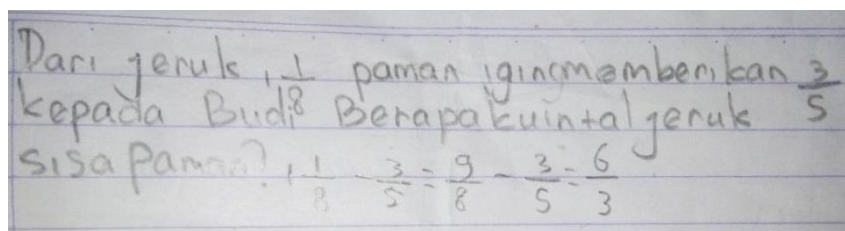 Dari jeruk, 1 1/8 paman igin memberikan 3/5
kepada Budi Berapa kuintal jeruk
sisa Paman? 1 1/8 - 3/5 = 9/8 - 3/5 = 6/3